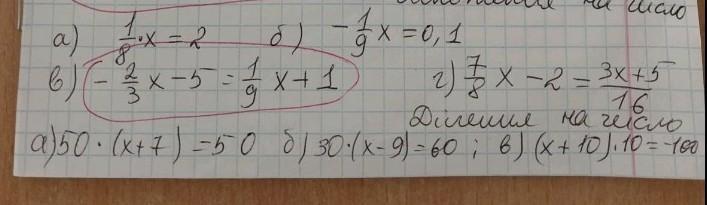 на число
а) 1/8 · x = 2 б) -1/9 x = 0,1
в) -2/3 x - 5 = 1/9 x + 1 г) 7/8 x - 2 = (3x+5)/16
Ділення на число
а) 50 · (x+7) = 50 б) 30·(x-9) = 60 ; в) (x+10)·10 = -100